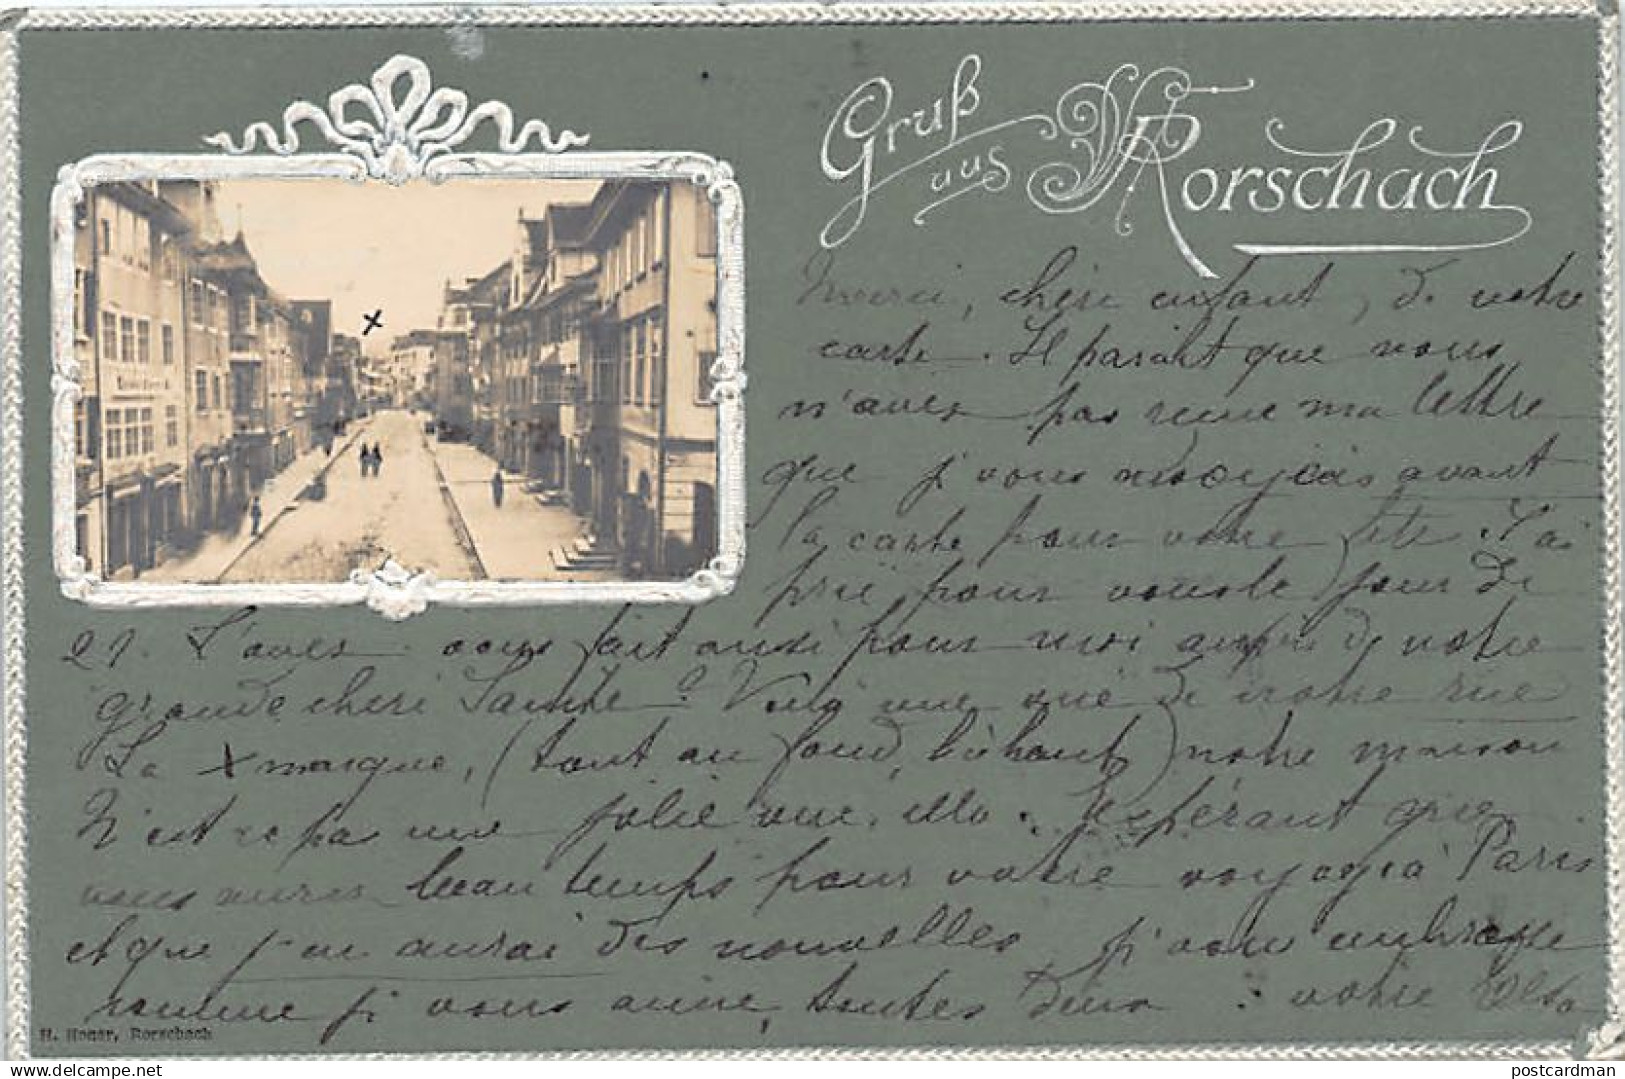 Gruß
aus Rorschach
Merci, chère enfant, de votre
carte. Il paraiht que vous
n'avez pas reçue ma lettre
que j vous avant
la carte pour votre fête. J'ai
prié pour vous le jour de
21. L'avez vous fait aussi pour moi auprès de votre
grande chère Sainte? Voilà une vue de notre rue
La x marque, (tout au fond, là haut) notre maison
N'est ce pas une jolie vue. Espérant que
vous aurez beau temps pour votre voyage à Paris
et que j'en aurai des nouvelles j' vous embrasse
comme j' vous aime, toutes deux. votre
H. Honer, Rorschach
postcardman